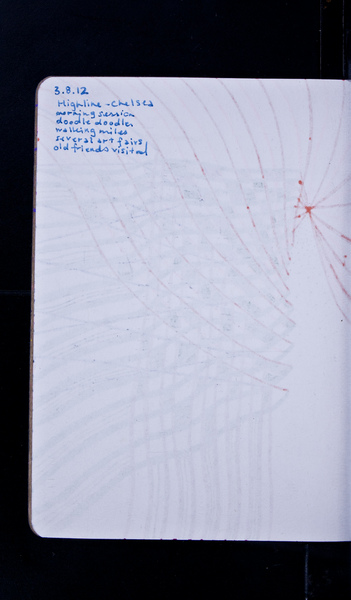 3.8.12
Highline - Chelsea
morning session
doodle doodles
walking miles
several art fairs
old friends visited